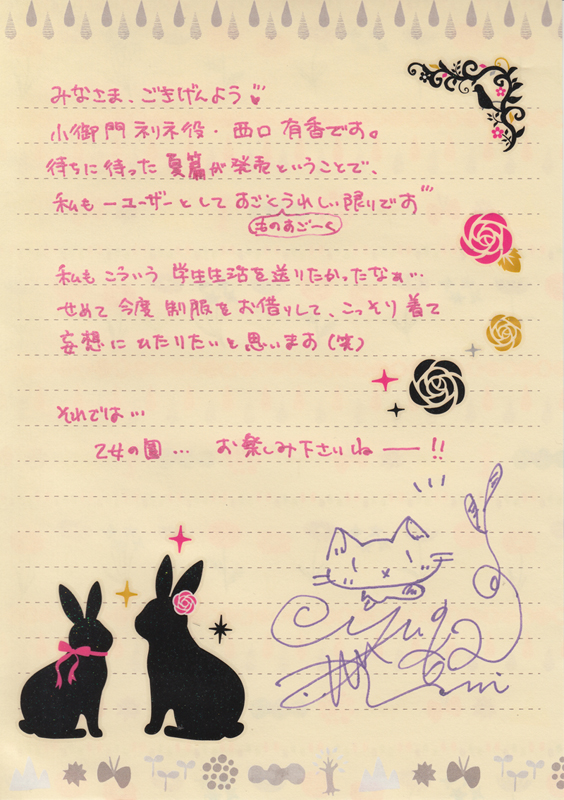 みなさま、ごきげんよう
小御門 ネリネ役・西口 有香です。
待ちに待った 夏篇が発売ということで、
私も一ユーザーとして すごくうれしい限りです
私も こういう 学生生活を送りたかったなぁ…
せめて 今度 制服をお借りして、こっそり着て
妄想に ひたりたいと思います（笑）
それでは…
乙女の園… お楽しみ下さいねー!!